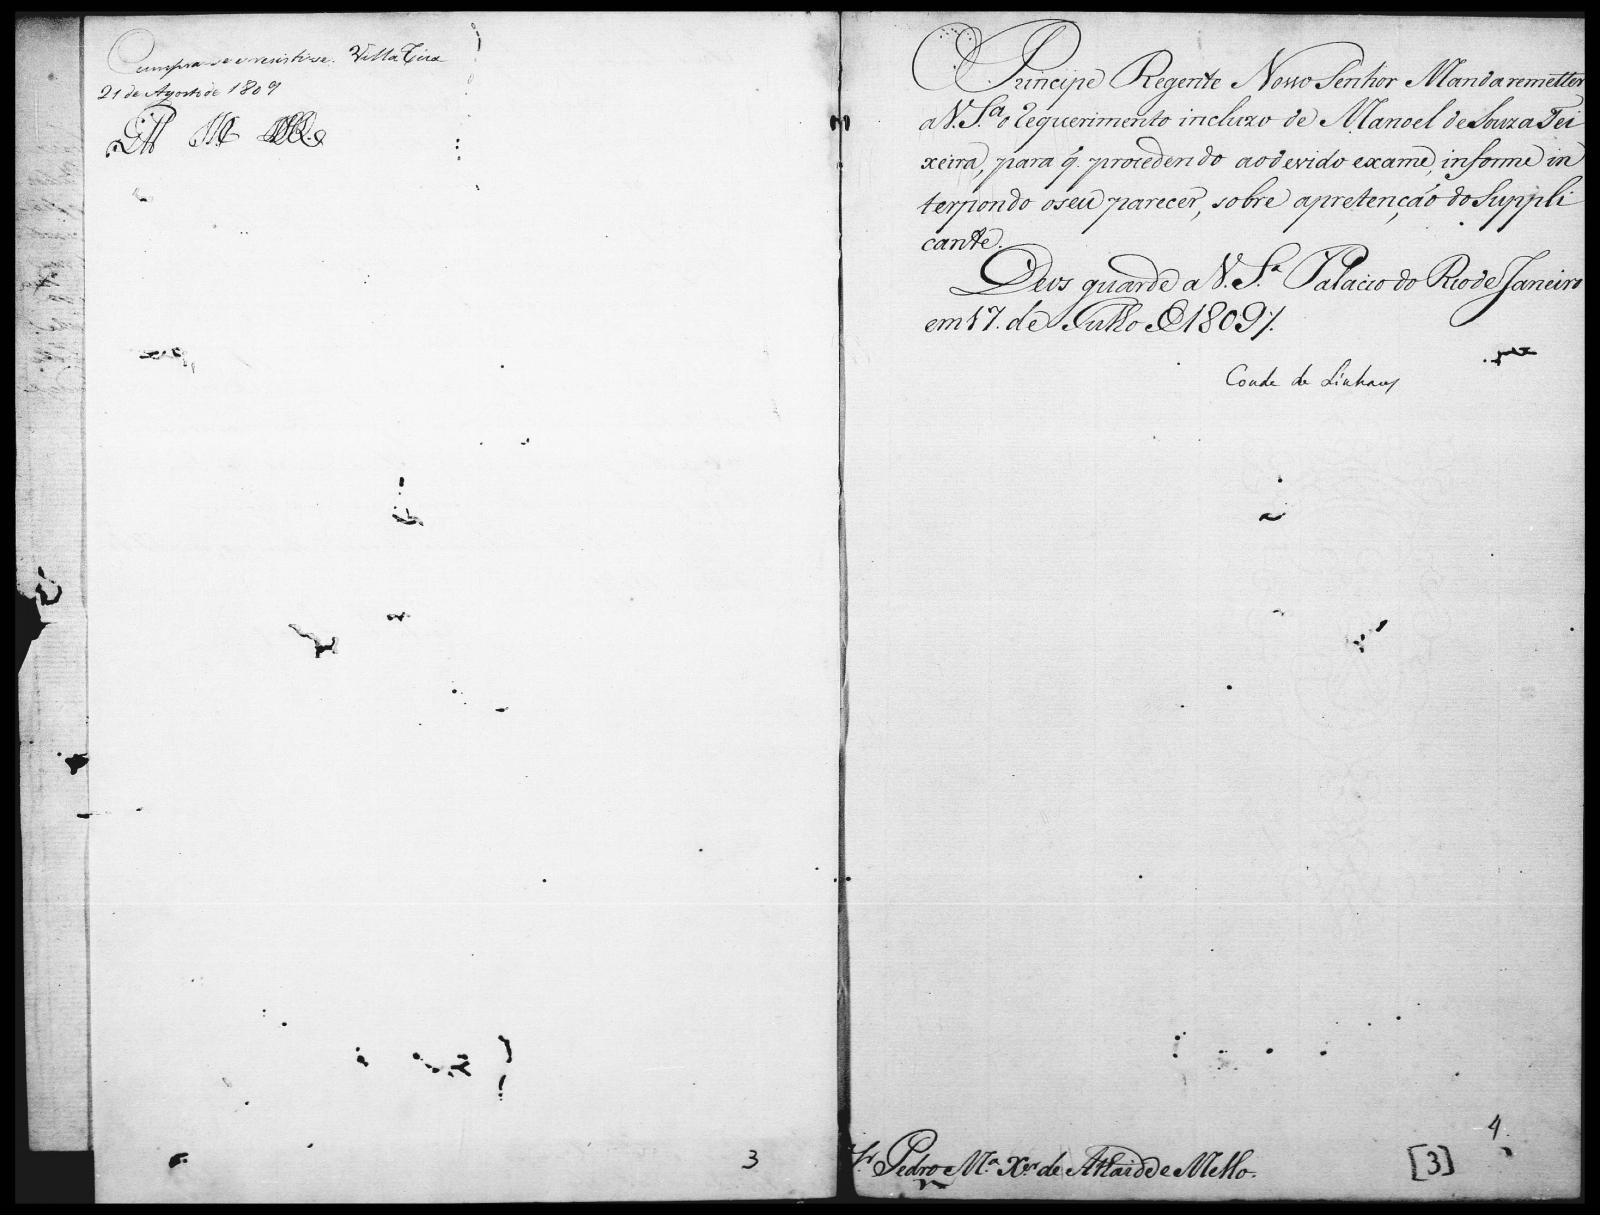 Cumpra-se e resiste-se. Villa Rica
21 de Agosto de 1809
3
O Principe Regente Nosso Senhor Manda remetter
a V. S.ª o Requerimento incluzo de Manoel de Souza Tei
xeira, para q. procedendo ao devido exame, informe in
terpondo o seu parecer, sobre a pretenção do Suppli
cante.
Deos guarde a V. S.ª Palacio do Rio de Janeiro
em 17. de Julho de 1809
Conde de Linhares
Sr. Pedro M.ª X.er de Athaide e Mello.
[3]
4